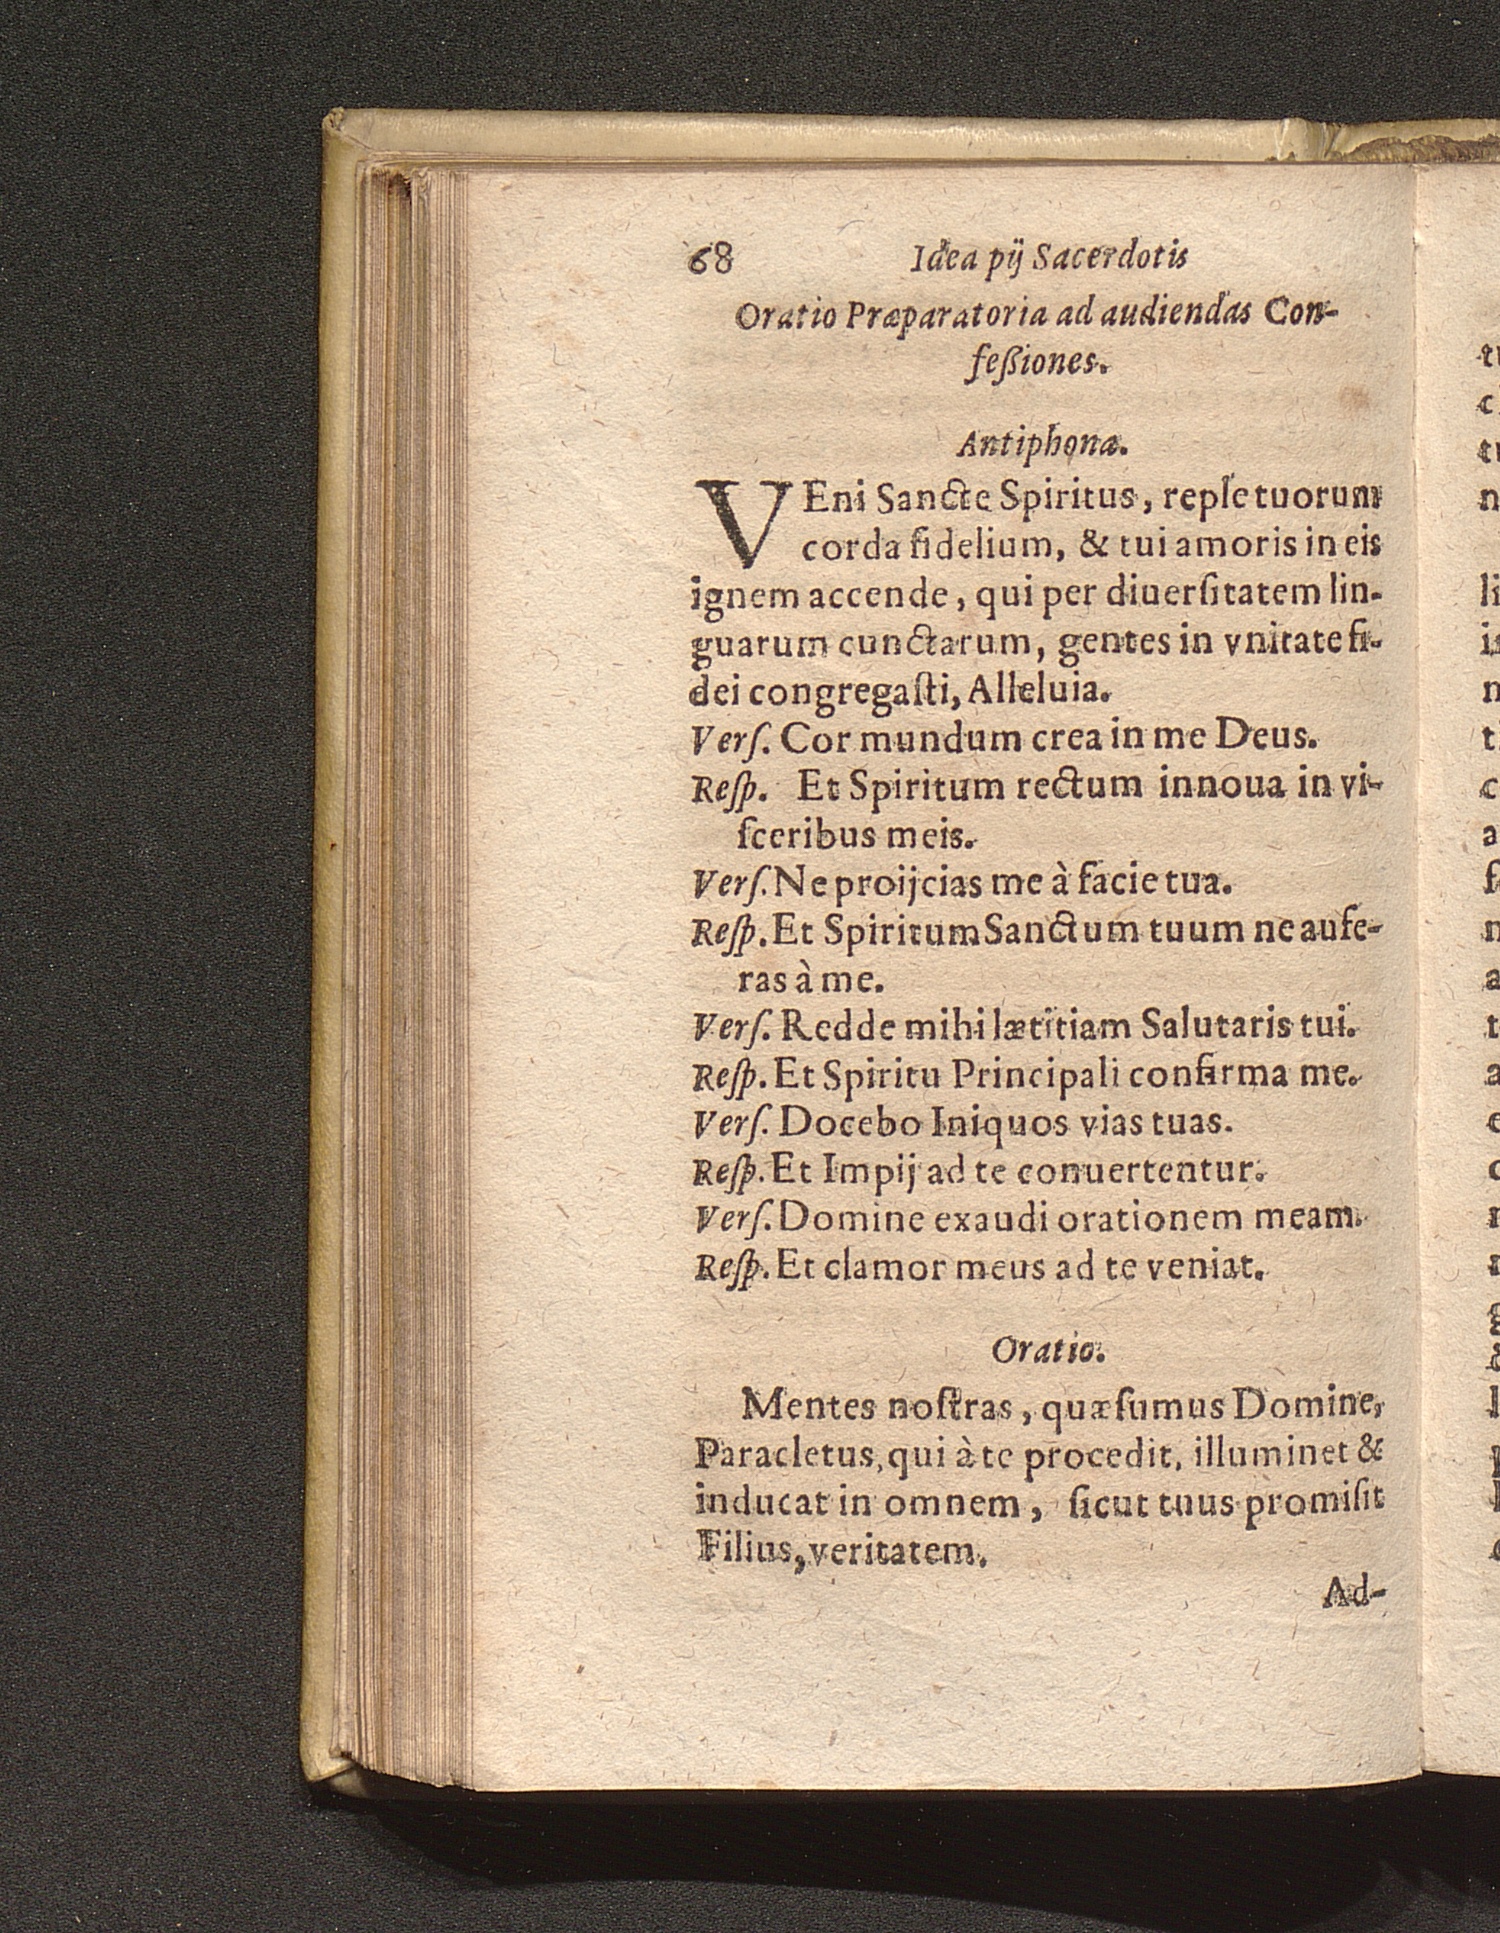 68 Idea pij Sacerdotis
Oratio Præparatoria ad audiendas Con-
feßiones.
Antiphona.
VEni Sancte Spiritus, reple tuorum
corda fidelium, & tui amoris in eis
ignem accende, qui per diuerſitatem lin-
guarum cunctarum, gentes in vnitate fi-
dei congregaſti, Alleluia.
Verſ. Cor mundum crea in me Deus.
Reſp. Et Spiritum rectum innoua in vi-
ſceribus meis.
Verſ. Ne proijcias me à facie tua.
Reſp. Et Spiritum Sanctum tuum ne aufe-
ras à me.
Verſ. Redde mihi lætitiam Salutaris tui.
Reſp. Et Spiritu Principali confirma me.
Verſ. Docebo Iniquos vias tuas.
Reſp. Et Impij ad te conuertentur.
Verſ. Domine exaudi orationem meam.
Reſp. Et clamor meus ad te veniat.
Oratio.
Mentes noſtras, quæſumus Domine,
Paracletus, qui à te procedit, illuminet &
inducat in omnem, ſicut tuus promiſit
Filius, veritatem.
Ad-